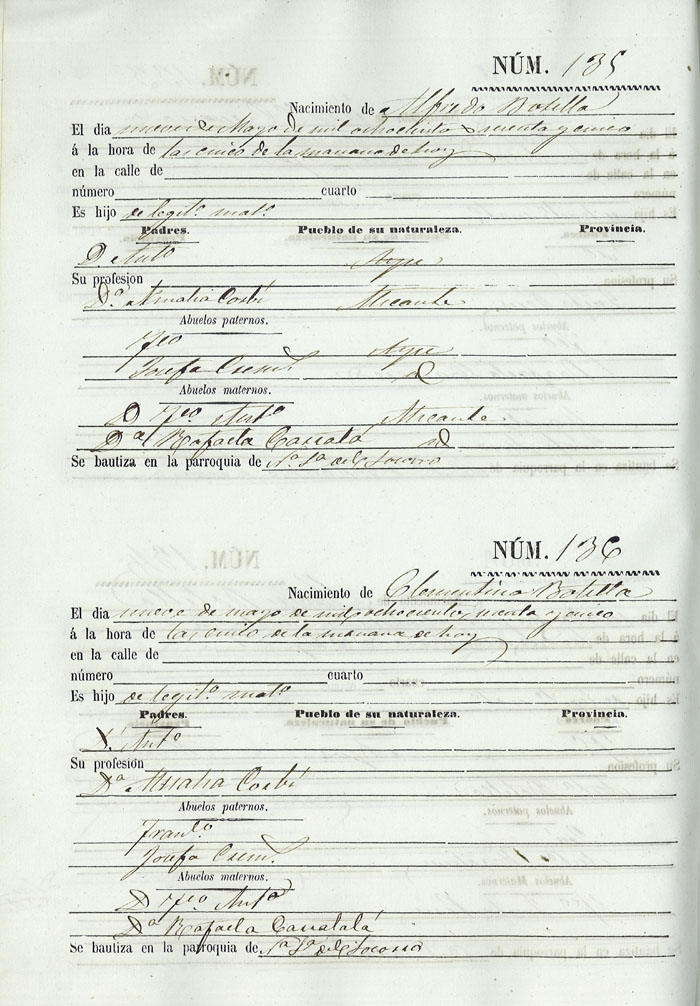 NÚM. 135
Nacimiento de Alfredo Botella
El dia nueve de Mayo de mil ochociento sesenta y cinco
á la hora de las cinco de la mañana de hoy
en la calle de
número cuarto
Es hijo de legit.º mat.º
Padres. Pueblo de su naturaleza. Provincia.
D. Ant.º Aspe
Su profesion
D.ª Amalia Corbí Alicante
Abuelos paternos.
Fco Aspe
Josefa Crem.s id
Abuelos maternos.
D Fco Ant.º Alicante
D.ª Rafaela Carratalá id
Se bautiza en la parroquia de N.ª S.ª del Socorro
NÚM. 136
Nacimiento de Clementino Botella
El dia nueve de mayo de mil ochociento sesenta y cinco
á la hora de las cinco de la mañana de hoy
en la calle de
número cuarto
Es hijo de legit.º mat.º
Padres. Pueblo de su naturaleza. Provincia.
D. Ant.º
Su profesion
D.ª Amalia Corbí
Abuelos paternos.
Fran.co
Josefa Crem.s
Abuelos maternos.
D Fco Ant.º
D.ª Rafaela Carratalá
Se bautiza en la parroquia de N.ª S.ª del Socorro